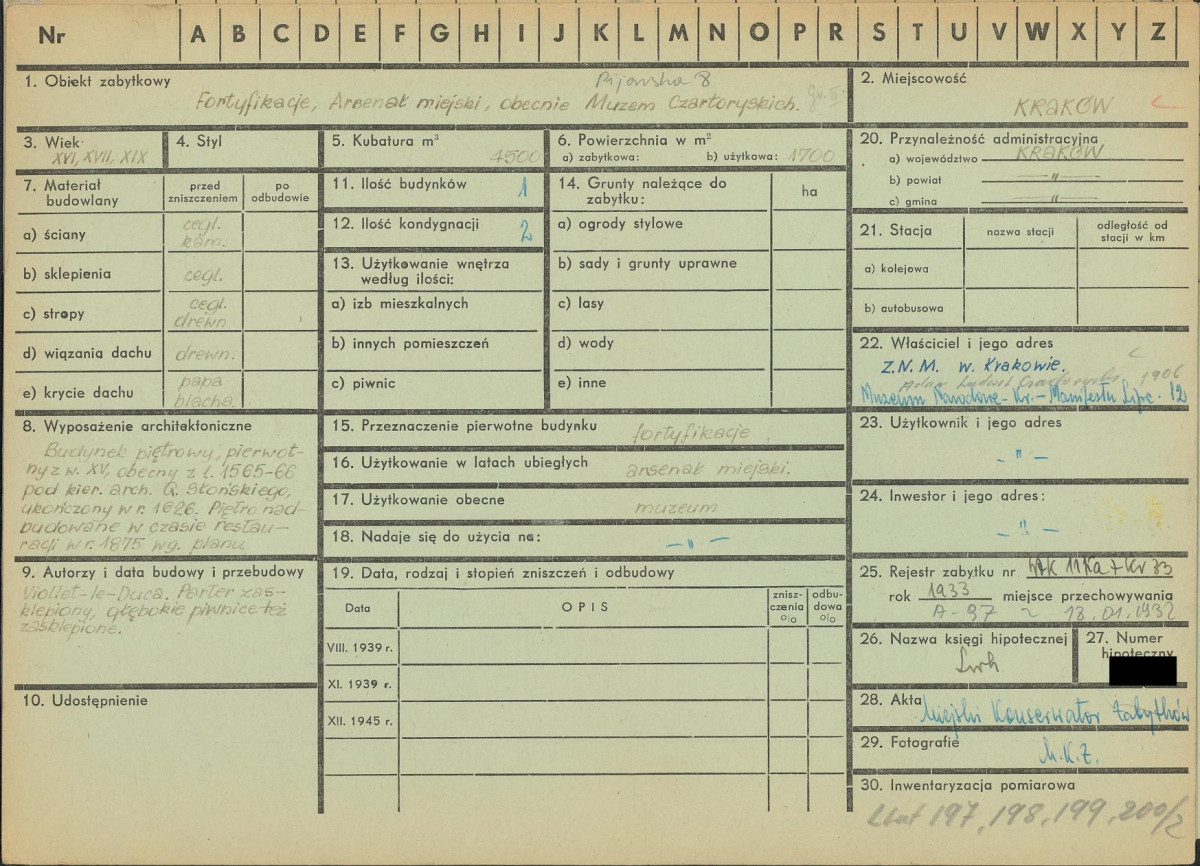 Nr A B C D E F G H I J K L M N O P R S T U V W X Y Z
1. Obiekt zabytkowy
Pijarska 8
Fortyfikacje, Arsenał miejski, obecnie Muzem Czartoryskich. Gr. II
2. Miejscowość
KRAKÓW
3. Wiek
XVI, XVII, XIX
4. Styl
5. Kubatura m³
4500
6. Powierzchnia w m²
a) zabytkowa: b) użytkowa: 1700
7. Materiał budowlany
przed zniszczeniem
po odbudowie
a) ściany cegl. kam.
b) sklepienia cegl.
c) stropy cegl. drewn
d) wiązania dachu drewn.
e) krycie dachu papa blacha.
8. Wyposażenie architektoniczne
Budynek piętrowy, pierwot-
ny z w. XV, obecny z l. 1565-66
pod kier. arch. G. Słońskiego,
ukończony w r. 1626. Piętro nad-
budowane w czasie restau-
racji w r. 1875 wg. planu
9. Autorzy i data budowy i przebudowy
Viollet-le-Duca. Parter zas-
klepiony, głębokie piwnice też
zasklepione.
10. Udostępnienie
11. Ilość budynków 1
12. Ilość kondygnacji 2
13. Użytkowanie wnętrza
według ilości:
a) izb mieszkalnych
b) innych pomieszczeń
c) piwnic
14. Grunty należące do
zabytku:
ha
a) ogrody stylowe
b) sady i grunty uprawne
c) lasy
d) wody
e) inne
15. Przeznaczenie pierwotne budynku fortyfikacje.
16. Użytkowanie w latach ubiegłych arsenał miejski.
17. Użytkowanie obecne muzeum
18. Nadaje się do użycia na: — " —
19. Data, rodzaj i stopień zniszczeń i odbudowy
Data
OPIS
znisz-
czenia
o/o
odbu-
dowa
o/o
VIII. 1939 r.
XI. 1939 r.
XII. 1945 r.
20. Przynależność administracyjna
a) województwo KRAKÓW
b) powiat — " —
c) gmina — " —
21. Stacja
nazwa stacji
odległość od
stacji w km
a) kolejowa
b) autobusowa
22. Właściciel i jego adres
Z.N.M. w. Krakowie.
Adam Ludwik Czartoryski 1906
Muzeum Narodowe - Kr. - Manifestu Lipc. 12
23. Użytkownik i jego adres
- " -
24. Inwestor i jego adres:
- " -
25. Rejestr zabytku nr
rok 1933 miejsce przechowywania
A-97 ~ 18.01.1932
26. Nazwa księgi hipotecznej
Lwh
27. Numer
hipoteczny
28. Akta Miejski Konserwator Zabytków
29. Fotografie
M.K.Z.
30. Inwentaryzacja pomiarowa
197, 198, 199, 200/2